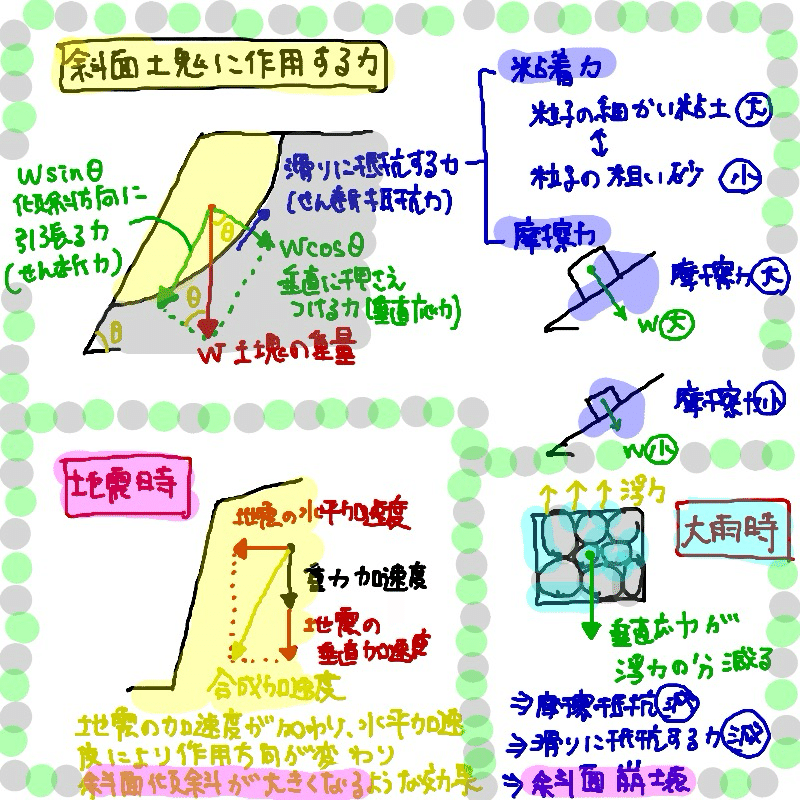 斜面土塊に作用する力
Wsinθ
傾斜方向に
引張る力
(せん断力)
滑りに抵抗する力
(せん断抵抗力)
Wcosθ
垂直に押さえ
つける力(垂直応力)
θ
θ
θ
W 土塊の重量
粘着力
粒子の細かい粘土 大
粒子の粗い砂 小
摩擦力
摩擦力 大
W 大
摩擦力 小
W 小
地震時
地震の水平加速度
重力加速度
地震の
垂直加速度
合成加速度
地震の加速度が加わり、水平加速
度により作用方向が変わり
斜面傾斜が大きくなるような効果
浮力
大雨時
垂直応力が
浮力の分減る
⇒摩擦抵抗 減
⇒滑りに抵抗する力 減
⇒斜面崩壊